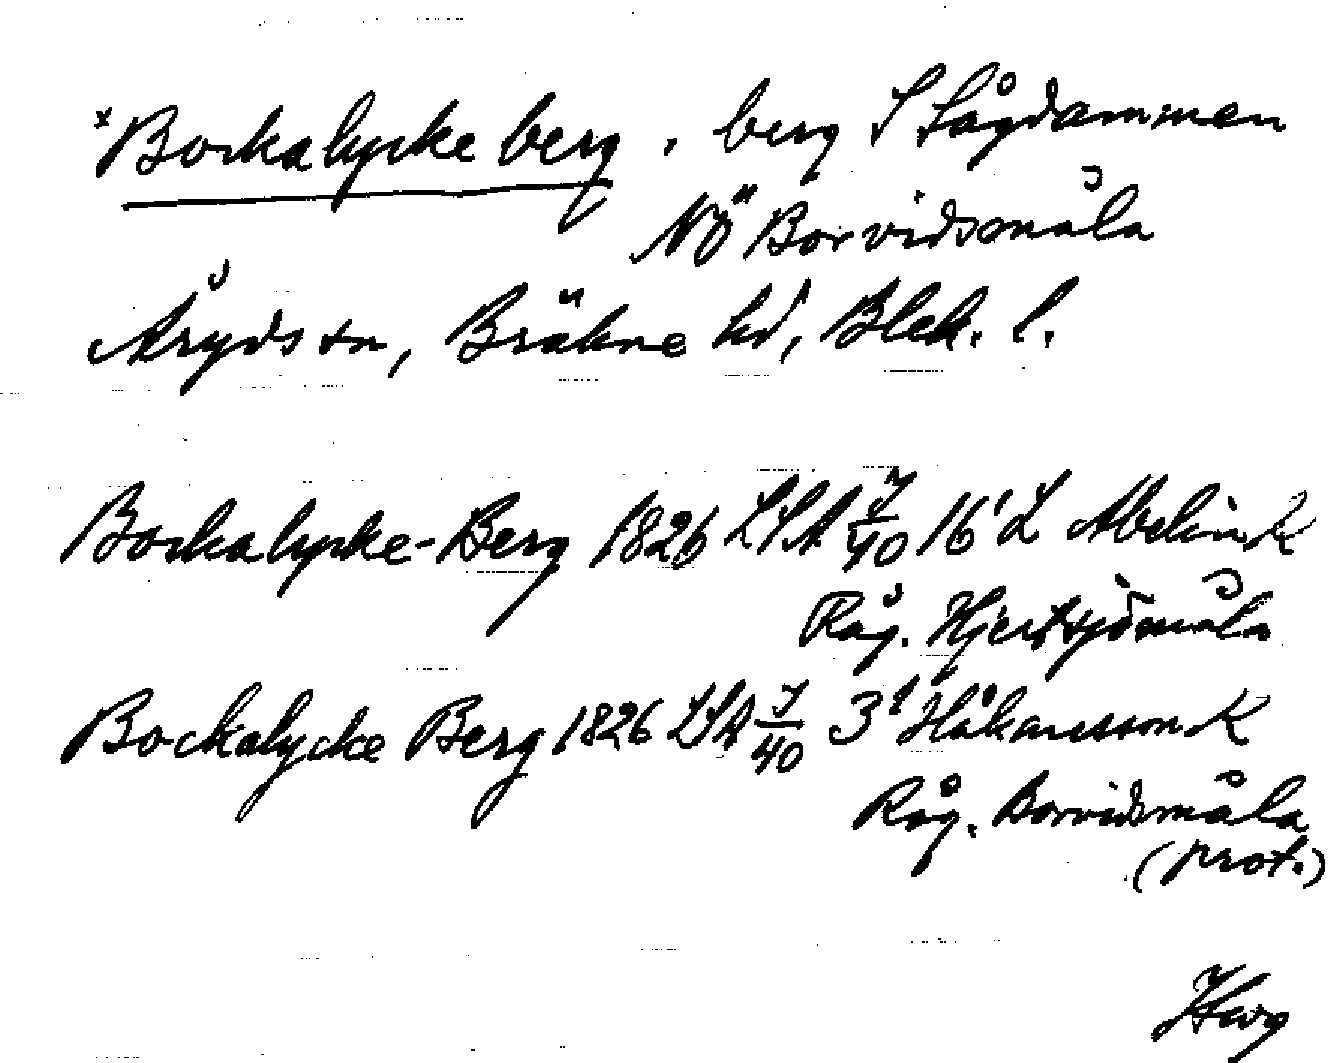 *Bockalycke berg, berg S Sågdammen
NÖ Borvidsmåla
Åryds sn, Bräkne hd, Blek. l.
Bockalycke-Berg 1826 LSA J/40 16' L Abelin K
Råg. Hjertsjömåla
Bockalycke Berg 1826 LSA J/40 3' Håkansson K
Råg. Borvidsmåla
(prot.)